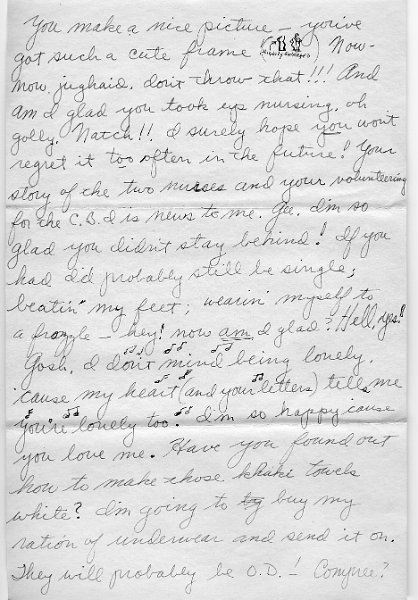 You make a nice picture — you've
got such a cute frame ( ) Now-
now, jughaid, don't throw that!!! And
am I glad you took up nursing, oh
golly. Natch!! I surely hope you won't
regret it too often in the future! Your
story of the two nurses and your volunteering
for the C.B.I is news to me. Gee, I'm so
glad you didn't stay behind! If you
had I'd probably still be single;
beatin' my feet; wearin' myself to
a frazzle — hey! now am I glad? Hell, yes!
Gosh, I don't mind being lonely,
'cause my heart (and your letters) tells me
you're lonely too. I'm so happy cause
you love me. Have you found out
how to make those khaki towels
white? I'm going to try buy my
ration of underwear and send it on.
They will probably be O.D.! Compree?